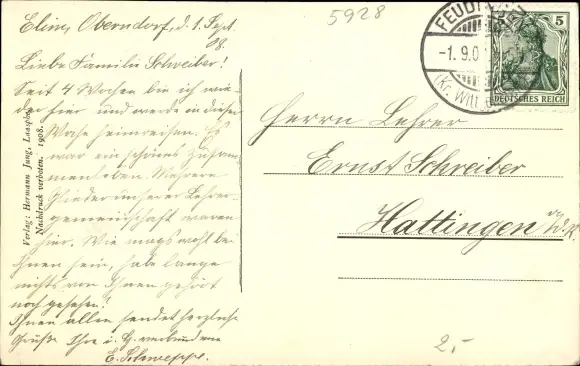 5928
Elim, Oberndorf, d. 1. Sept.
08.
Liebe Familie Schreiber!
Seit 4 Wochen bin ich wie-
der hier und werde in dieser
Woche heimreisen. Es
war ein schönes Zusam-
menleben. Mehrere
Glieder unserer Lehrer-
gemeinschaft waren
hier. Wie mags wohl bei
Ihnen sein, habe lange
nichts von Ihnen gehört
noch gesehen!
Ihnen allen sendet herzliche
Grüße Ihre i. H. verbundene
E. Schweppe.
Verlag: Hermann Jung, Laasphe
Nachdruck verboten. 1908.
FEUDINGEN
-1.9.0
(Kr. Witt
5
DEUTSCHES REICH
Herrn Lehrer
Ernst Schreiber
Hattingen
a/d. R.
2,-